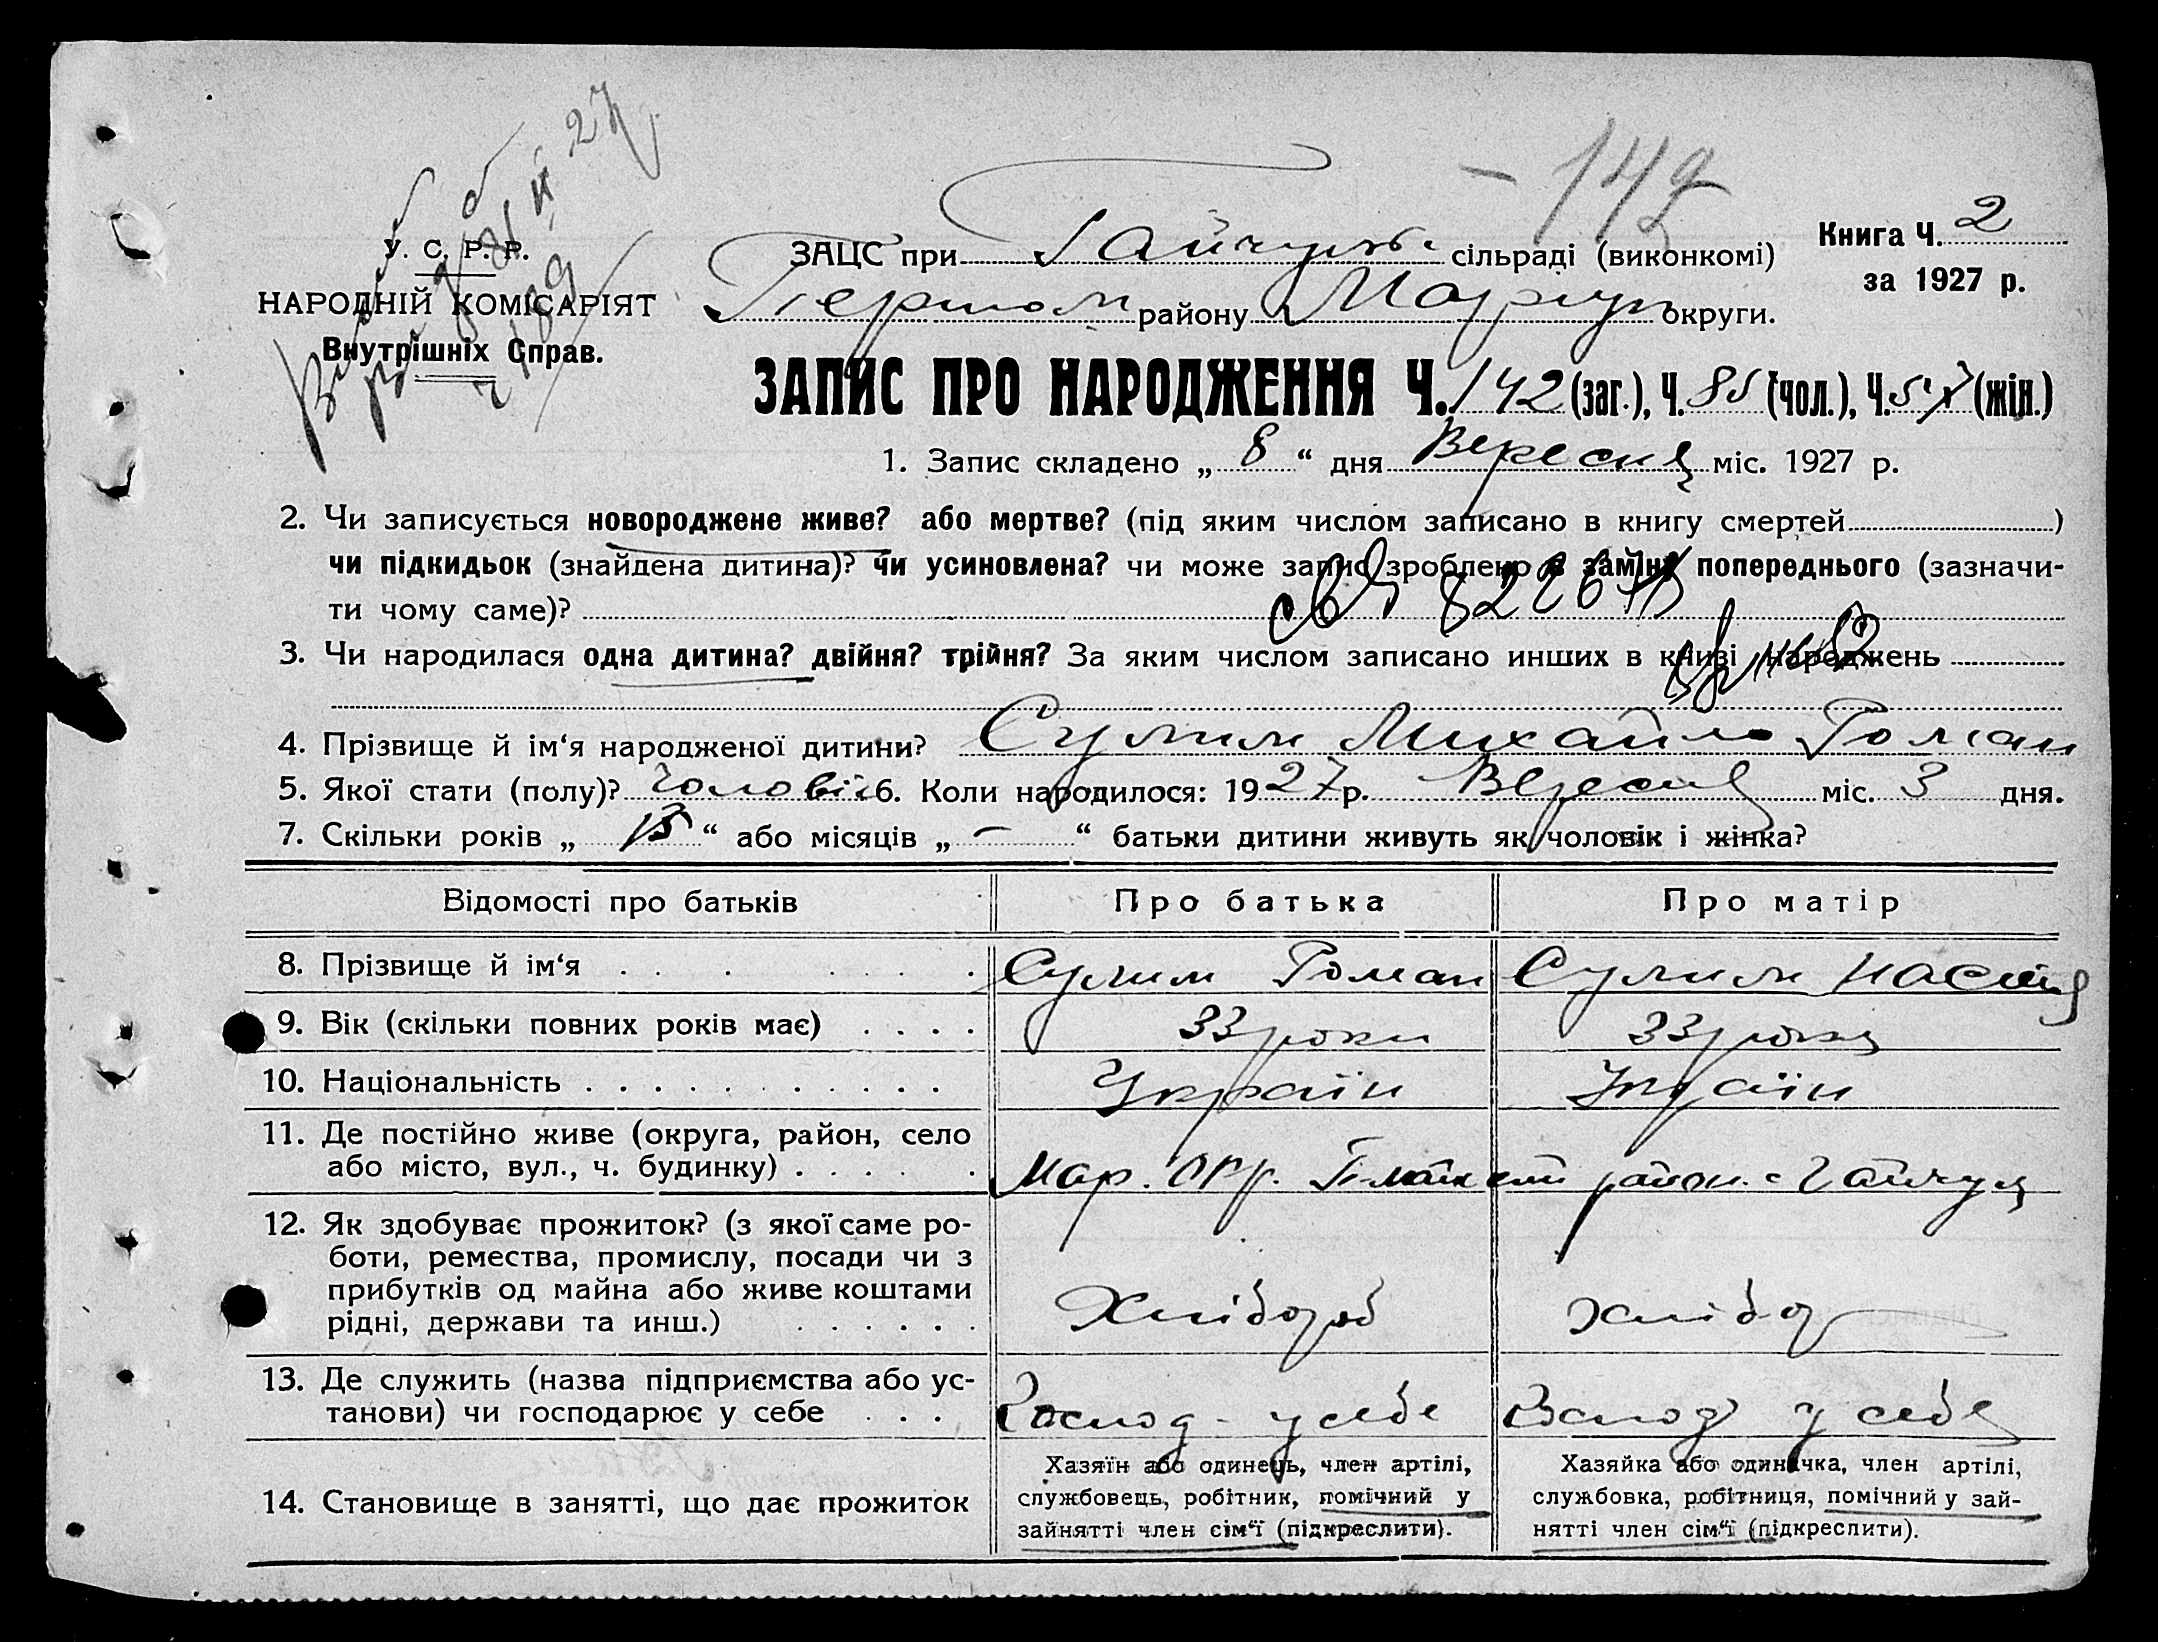 - 142
У. С. Р. Р.
НАРОДНІЙ КОМІСАРІЯТ
Внутрішніх Справ.
Книга Ч. 2
за 1927 р.
ЗАЦС при Гайчульс. сільраді (виконкомі)
Першом району Маріуп округи.
ЗАПИС ПРО НАРОДЖЕННЯ Ч. 142 (заг.), Ч. 85 (чол.), Ч. 57 (жін.)
1. Запис складено „ 8 “ дня Вересня міс. 1927 р.
2. Чи записується новороджене живе? або мертве? (під яким числом записано в книгу смертей )
чи підкидьок (знайдена дитина)? чи усиновлена? чи може запис зроблено в заміну попереднього (зазначи-
ти чому саме)?
3. Чи народилася одна дитина? двійня? трійня? За яким числом записано инших в книзі народжень
4. Прізвище й ім‘я народженої дитини? Сулим Михайло Роман
5. Якої стати (полу)? чоловіч 6. Коли народилося: 1927 р. Вересня міс. 3 дня.
7. Скільки років „ 15 “ або місяців „ — “ батьки дитини живуть як чоловік і жінка?
Відомості про батьків Про батька Про матір
8. Прізвище й ім‘я Сулим Роман Сулим Настя
9. Вік (скільки повних років має) 33 роки 33 рока
10. Національність Україн Україн
11. Де постійно живе (округа, район, село
або місто, вул., ч. будинку) Мар. окр. район. с Гайчул
12. Як здобуває прожиток? (з якої саме ро-
боти, ремества, промислу, посади чи з
прибутків од майна або живе коштами
рідні, держави та инш.) Хлібороб хлібор
13. Де служить (назва підприємства або ус-
танови) чи господарює у себе Господ. у себе Господ у себе
14. Становище в занятті, що дає прожиток
Хазяїн або одинець, член артілі,
службовець, робітник, помічний у
зайнятті член сім“ї (підкреслити).
Хазяйка або одиначка, член артілі,
службовка, робітниця, помічний у зай-
нятті член сім“ї (підкреслити).